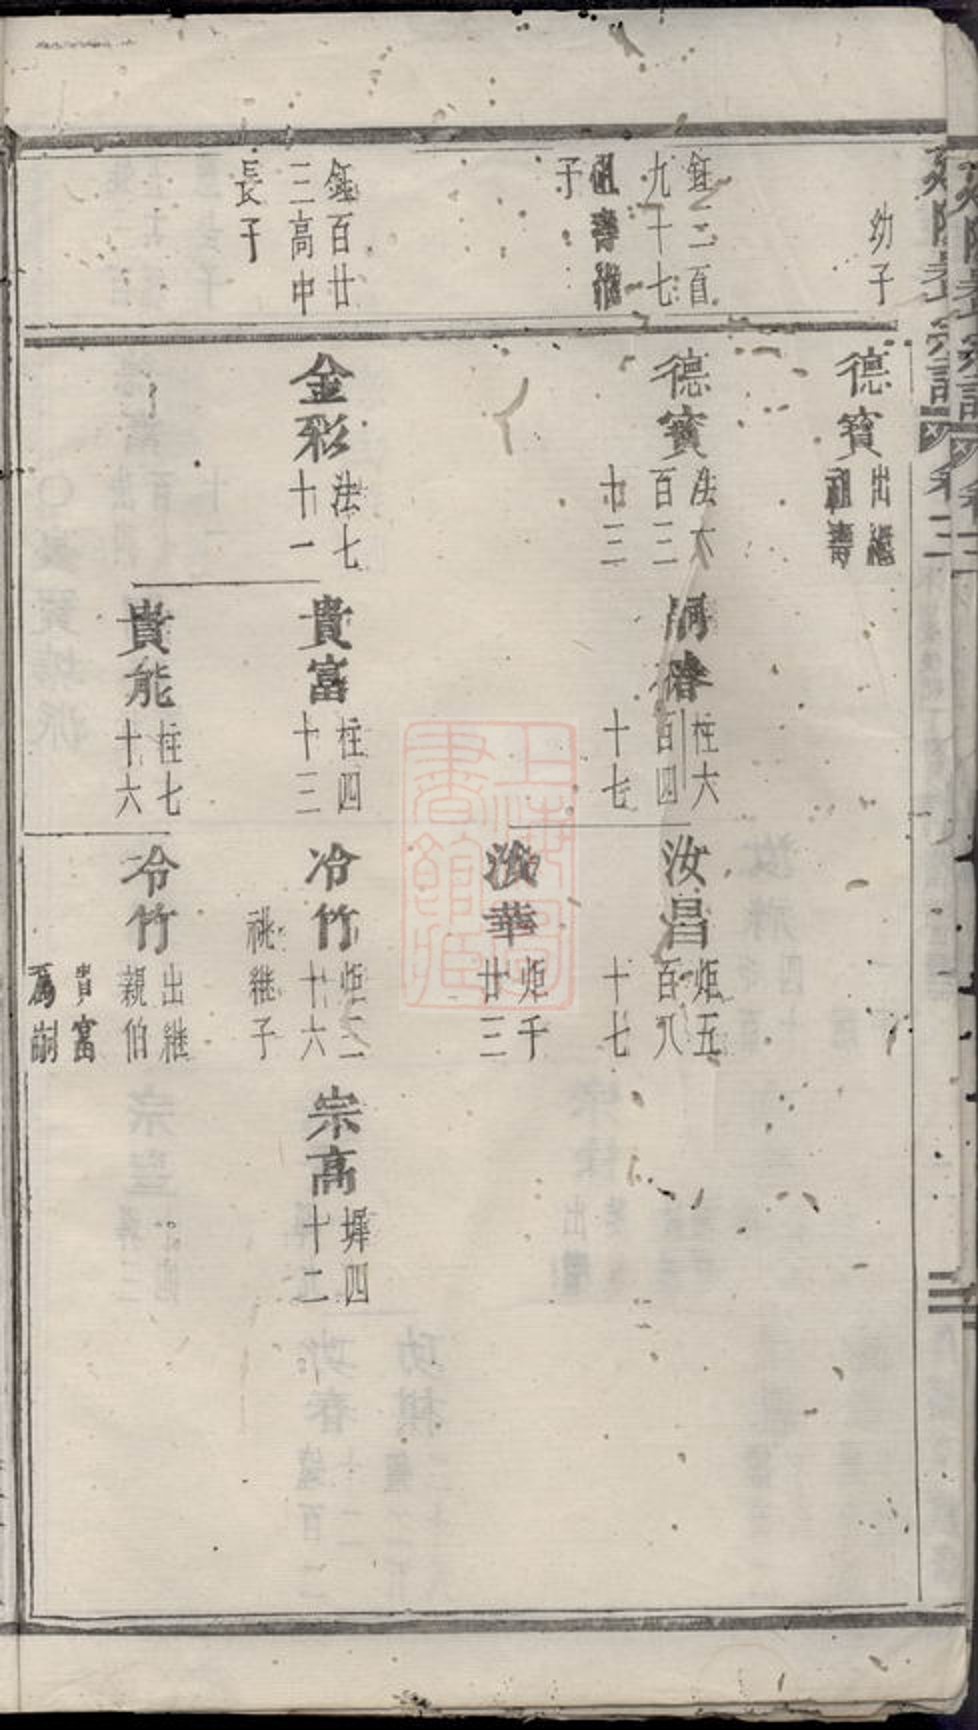 幼子
德寶
出繼
祖壽
九十七
祖壽繼
子
德寶
法六
百三
十三
嗣
柱六
百四
十七
汝昌
炬五
百八
十七
汝華
炬千
廿三
鉦百廿
三高中
長子
金彩
法七
十一
貴富
柱四
十三
冷竹
炬二
十六
祧继子
宗高
墀四
十二
貴能
柱七
十六
冷竹
出继
親伯
貴富
爲嗣
上海圖書館藏